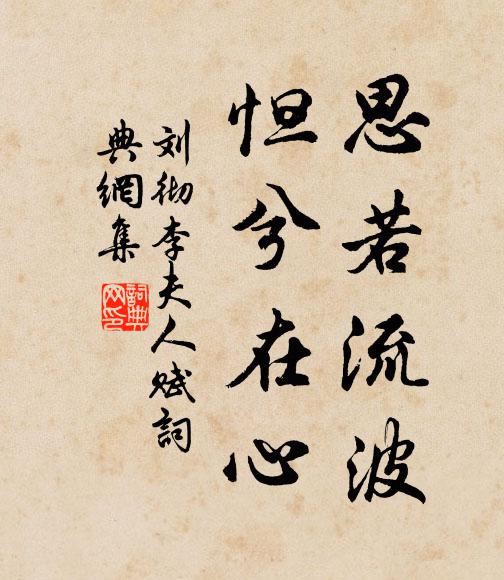 思若流波
怛兮在心
刘彻李夫人赋词
典網集
詞典
网印